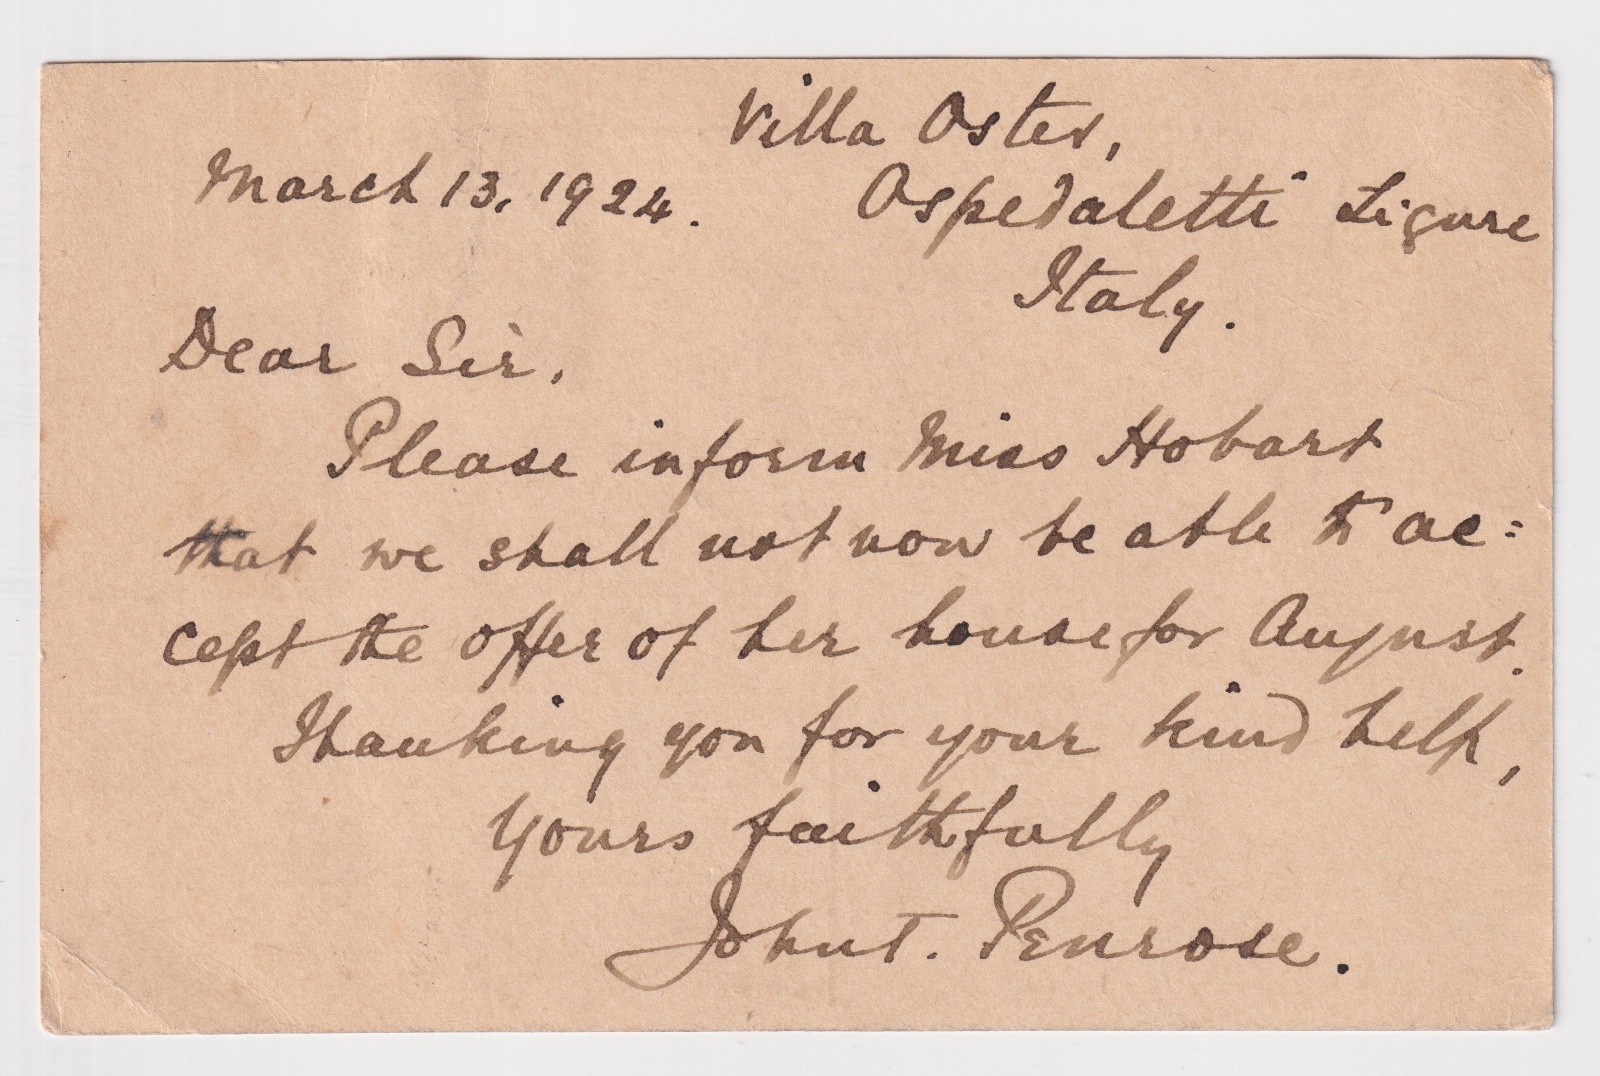 Villa Oster,
March 13, 1924.
Ospedaletti Ligure
Italy.
Dear Sir,
Please inform Miss Hobart
that we shall not now be able to ac=
cept the offer of her house for August.
Thanking you for your kind help,
Yours faithfully
John T. Penrose.